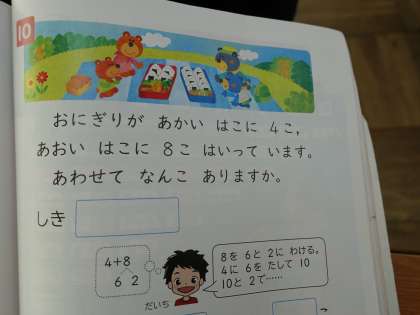 10
おにぎりが あかい はこに 4こ,
あおい はこに 8こ はいって います。
あわせて なんこ ありますか。
しき
4+8
6 2
8を 6と 2に わける。
4に 6を たして 10
10と 2で……
だいち
こ